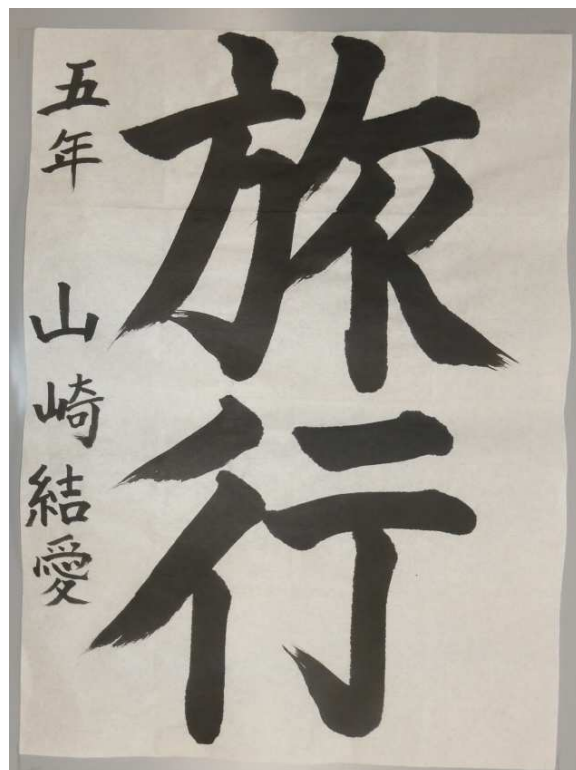 旅行
五年 山崎結愛